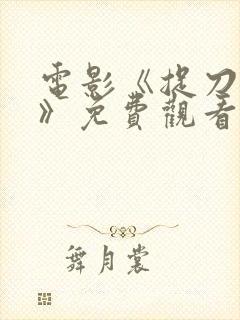 電影《捉刀
》免費觀看
舞月裳